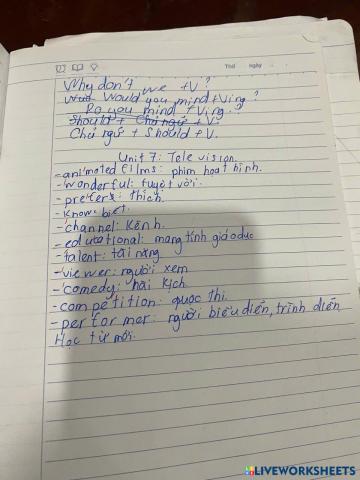 Thứ ngày
Why don't we +V?
Would you mind +Ving?
Do you mind +Ving?
Should + Chủ ngữ + V.
Chủ ngữ + Should +V.
Unit 7: Television.
- animated films: phim hoạt hình.
- wonderful: tuyệt vời.
- prefer: thích.
- know: biết.
- channel: Kênh.
- educational: mang tính giáo dục
- talent: tài năng
- viewer: người xem
- comedy: hài kịch
- competition: cuộc thi.
- performer: người biểu diễn, trình diễn
Học từ mới.
LIVEWORKSHEETS